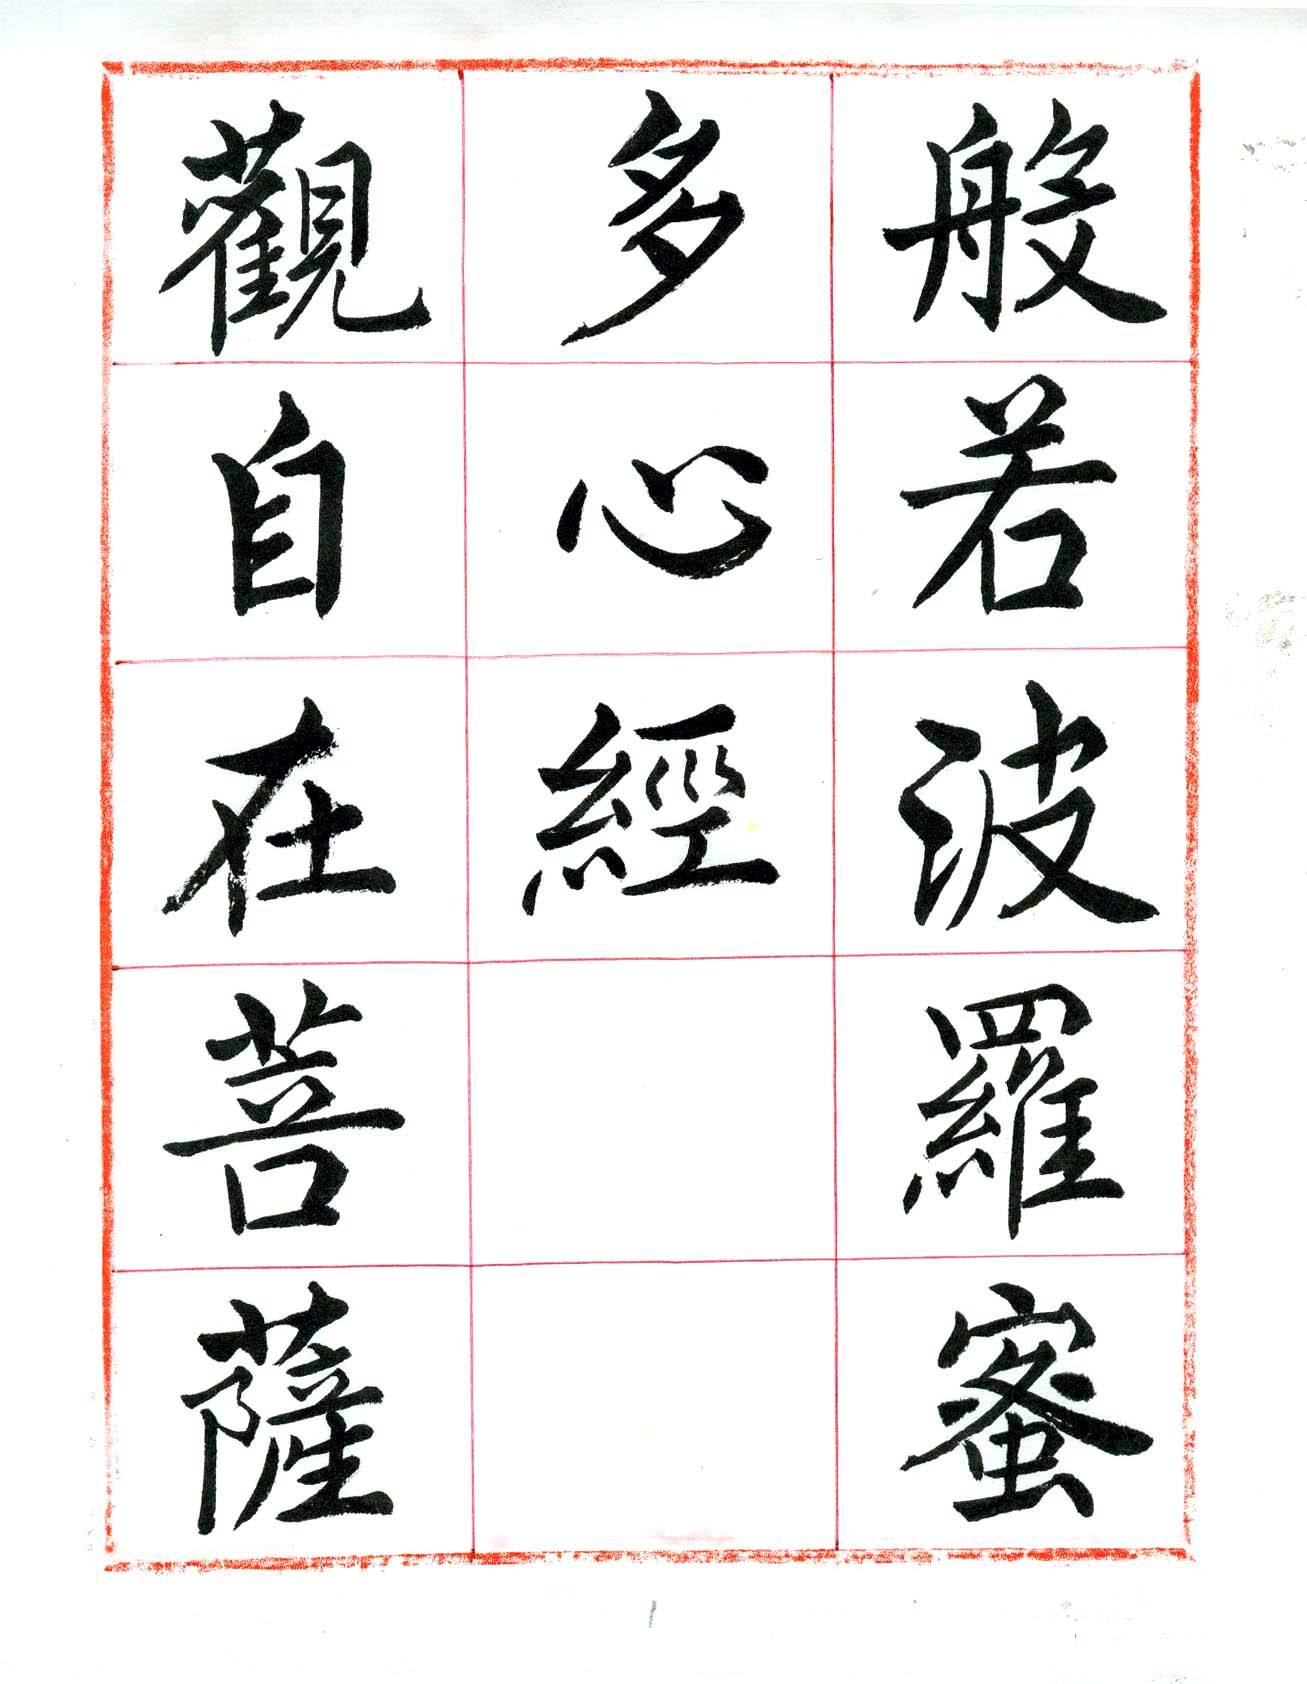 般若波羅蜜
多心經
觀自在菩薩
1